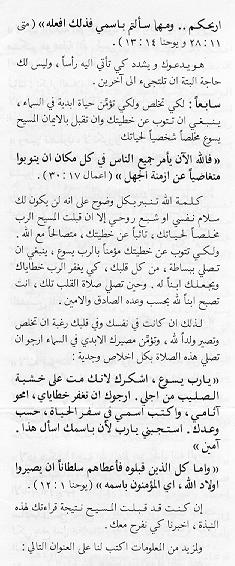 اريحكم .. ومهما سألتم باسمي فذلك افعله» (متى
١١ : ٢٨ و يوحنا ١٤ : ١٣) .
هو يدعوك و يشدد كي تأتي اليه رأساً ، وليس لك
حاجة البتة ان تلتجىء الى آخرين .
سابعاً : لكي تخلص ولكي تؤمّن حياة ابدية في السماء ،
ينبغي ان تتوب عن خطيتك وان تقبل بالايمان المسيح
يسوع مخلّصاً شخصياً لحياتك
«فالله الآن يأمر جميع الناس في كل مكان ان يتوبوا
متغاضياً عن ازمنة الجهل» (اعمال ١٧ : ٣٠) .
كلمة الله تنير بكل وضوح على انه لن يكون لك
سلام نفسي او شبع روحي إلا ان قبلت المسيح الرب
مخلّصاً لحياتك ، تائباً عن خطيتك ، متصالحاً مع الله .
ولكي تتوب عن خطيتك مؤمناً بالرب يسوع ، ينبغي ان
تصلي ببساطة ، من كل قلبك ، كي يغفر الرب خطاياك
ويجعلك ابناً له . وحين تصلي صلاة القلب تلك ، انت
تصبح ابناً لله بحسب وعده الصادق والامين .
لذلك ان كانت في نفسك وفي قلبك رغبة ان تخلص
وتصير ولداً لله ، وتؤمّن مصيرك الابدي في السماء ارجو ان
تصلي هذه الصلاة بكل اخلاص وجدية :
«يارب يسوع ، اشكرك لانك مت على خشبة
الصليب من اجلي . ارجوك ان تغفر خطاياي ، امحو
آثامي ، واكتب اسمي في سفر الحياة ، حسب
وعدك . استجبني يارب لأن باسمك اسأل هذا .
آمين»
«واما كل الذين قبلوه فأعطاهم سلطاناً ان يصيروا
اولاد الله ، اي المؤمنون باسمه» (يوحنا ١ : ١٢) .
إن كنت قد قبلت المسيح نتيجة قراءتك لهذه
النبذة ، اخبرنا كي نفرح معك .
ولمزيد من المعلومات اكتب لنا على العنوان التالي :